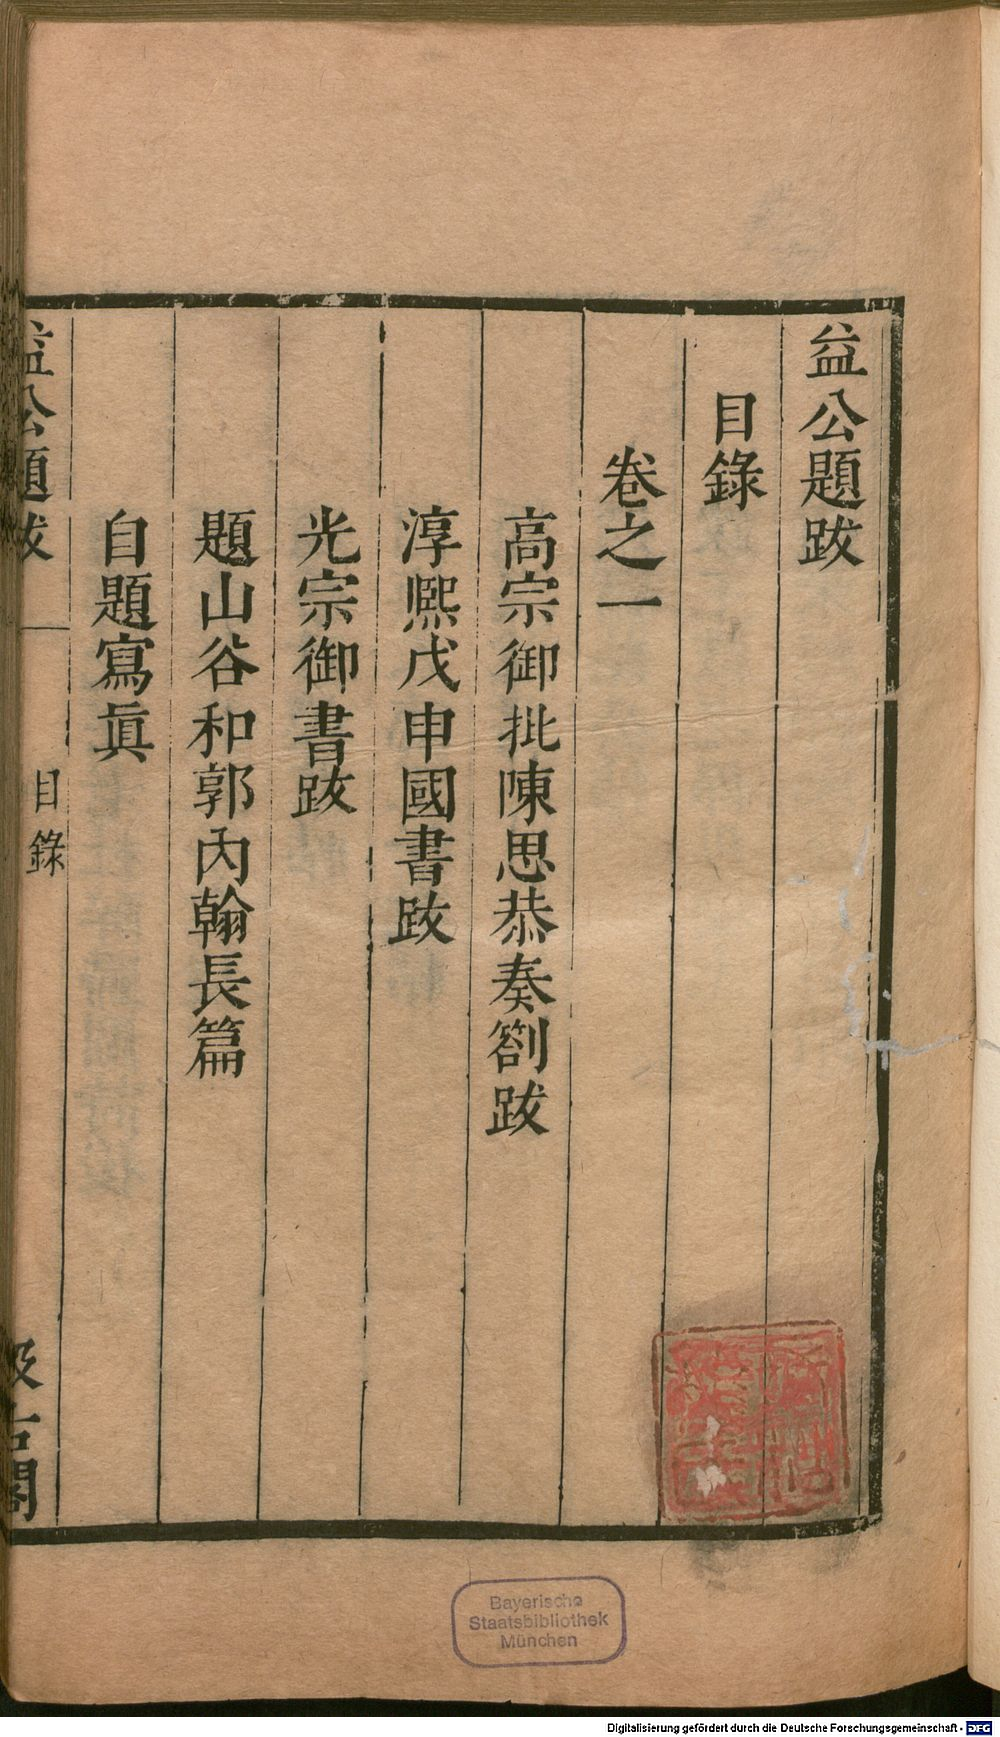 益公題跋
目錄
卷之一
高宗御批陳思恭奏劄跋
淳熙戊申國書跋
光宗御書跋
題山谷和郭內翰長篇
自題寫眞
益公題跋
目錄
汲古閣
Bayerische
Staatsbibliothek
München
Digitalisierung gefördert durch die Deutsche Forschungsgemeinschaft - DFG